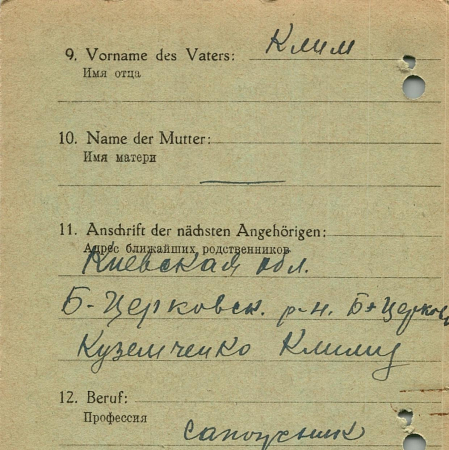 9. Vorname des Vaters: Клим
Имя отца
10. Name der Mutter:
Имя матери
11. Anschrift der nächsten Angehörigen:
Адрес ближайших родственников
Киевская обл.
Б-Церковск. р-н. Б-Церковь
Куземченко Климу
12. Beruf:
Профессия
сапожник